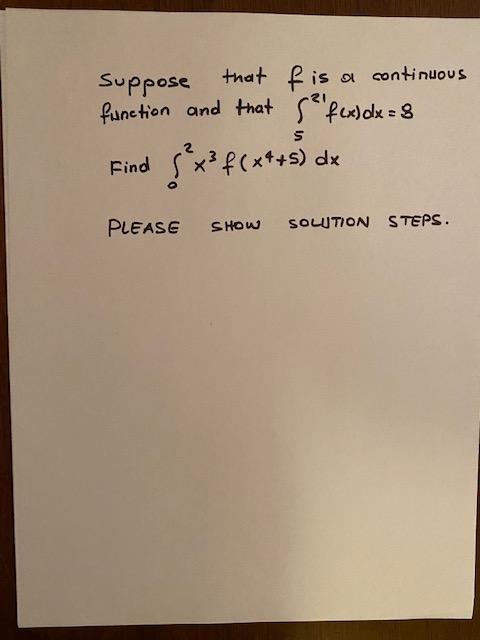 Suppose that f is a continuous
function and that ∫₅²¹ f(x)dx = 8
Find ∫₀² x³ f(x⁴+5) dx
PLEASE SHOW SOLUTION STEPS.